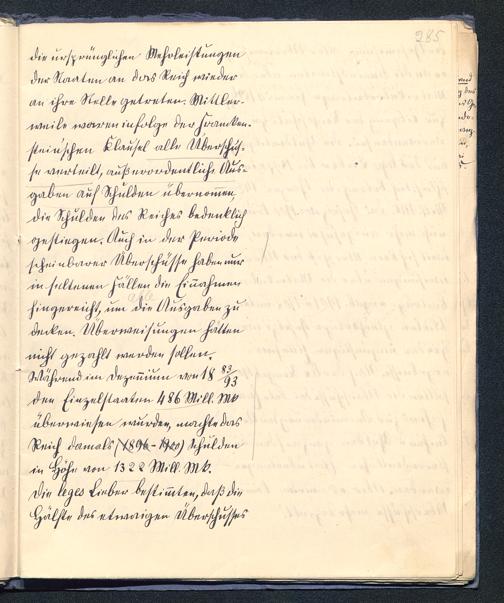 285
die ursprünglichen Mehrleistungen
der Staaten an das Reich wieder
an ihre Stelle getreten. Mittler-
weile waren infolge der Francken-
steinschen Klausel alle Überschüs-
se verteilt, außerordentliche Aus-
gaben auf Schulden übernom̅en,
die Schulden des Reiches bedenklich
gestiegen. Auch in der Periode
scheinbarer Überschüsse haben nur
in seltenen Fällen die Ein̅ahmen
hingereicht, um die Ausgaben zu
decken. Überweisungen hätten
nicht gezahlt werden sollen.
Während im Dezen̅ium von 18 83/93
den Einzelstaaten 486 Mill. Mk
überwiesen wurden, machte das
Reich damals (1894-1900) Schulden
in Höhe von 1322 Mill. Mk.
Die leges Lieber bestim̅ten, daß die
Hälfte des etwaigen Überschusses